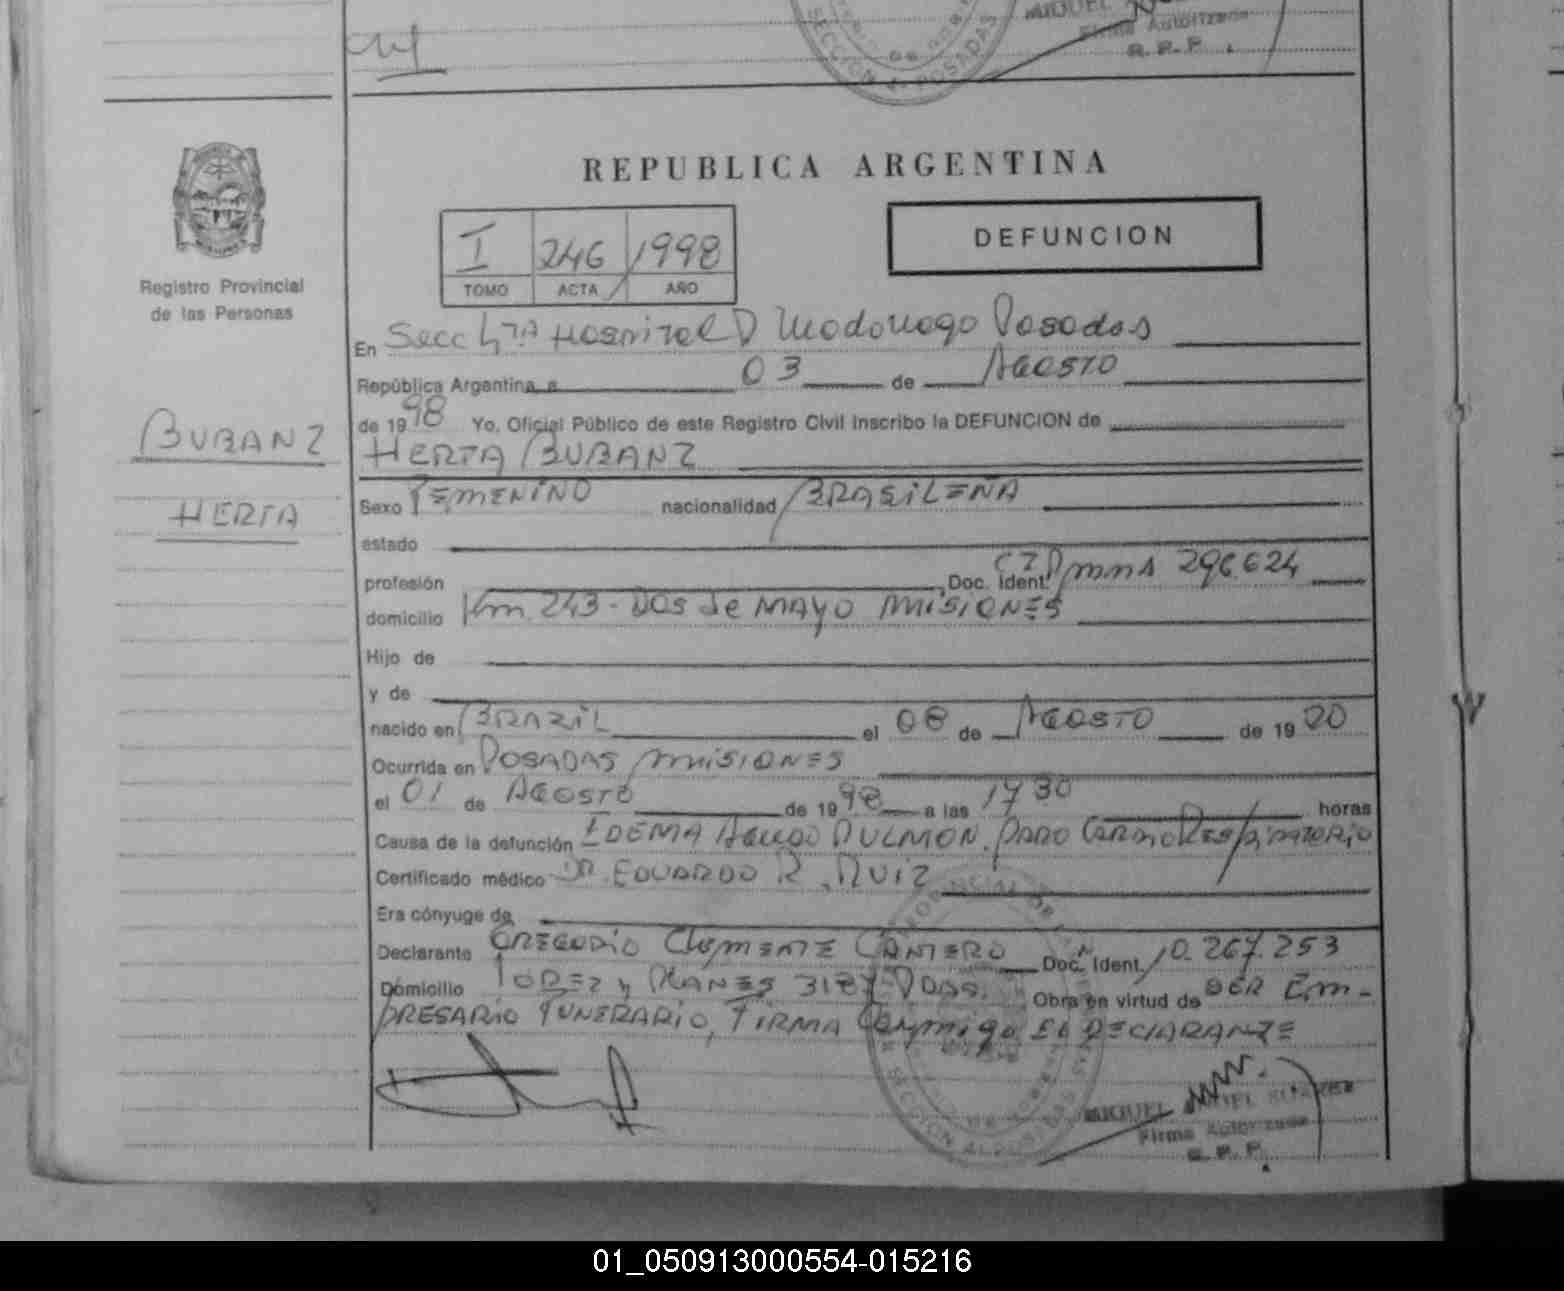 SECCION 4 POSADAS
MIGUEL
Firma Autorizada
R. P. P.
REPUBLICA ARGENTINA
I 246 1998
TOMO ACTA AÑO
DEFUNCION
Registro Provincial
de las Personas
BUBANZ
HERTA
En Secc 4TA Hospital D Madariaga Posadas
República Argentina a 03 de AGOSTO
de 1998 Yo, Oficial Público de este Registro Civil Inscribo la DEFUNCION de
HERTA BUBANZ
Sexo FEMENINO nacionalidad BRASILEÑA
estado
profesión Doc. Ident. 296.624
domicilio Km 243 - DOS de MAYO MISIONES
Hijo de
y de
nacido en BRAZIL el 08 de AGOSTO de 1920
Ocurrida en POSADAS MISIONES
el 01 de AGOSTO de 1998 a las 17 30 horas
Causa de la defunción EDEMA Agudo PULMON. PARO CardioRespiratorio
Certificado médico DR. EDUARDO R. RUIZ
Era cónyuge de
Declarante GREGORIO Clemente CANTERO Doc. Ident. 10.267.253
Domicilio LOPEZ y PLANES 3187 Pdas. Obra en virtud de SER Em-
PRESARIO FUNERARIO, FIRMA Conmigo El DECLARANTE
SECCION 4 POSADAS
MIGUEL ANGEL
Firma Autorizada
R. P. P.
01_050913000554-015216